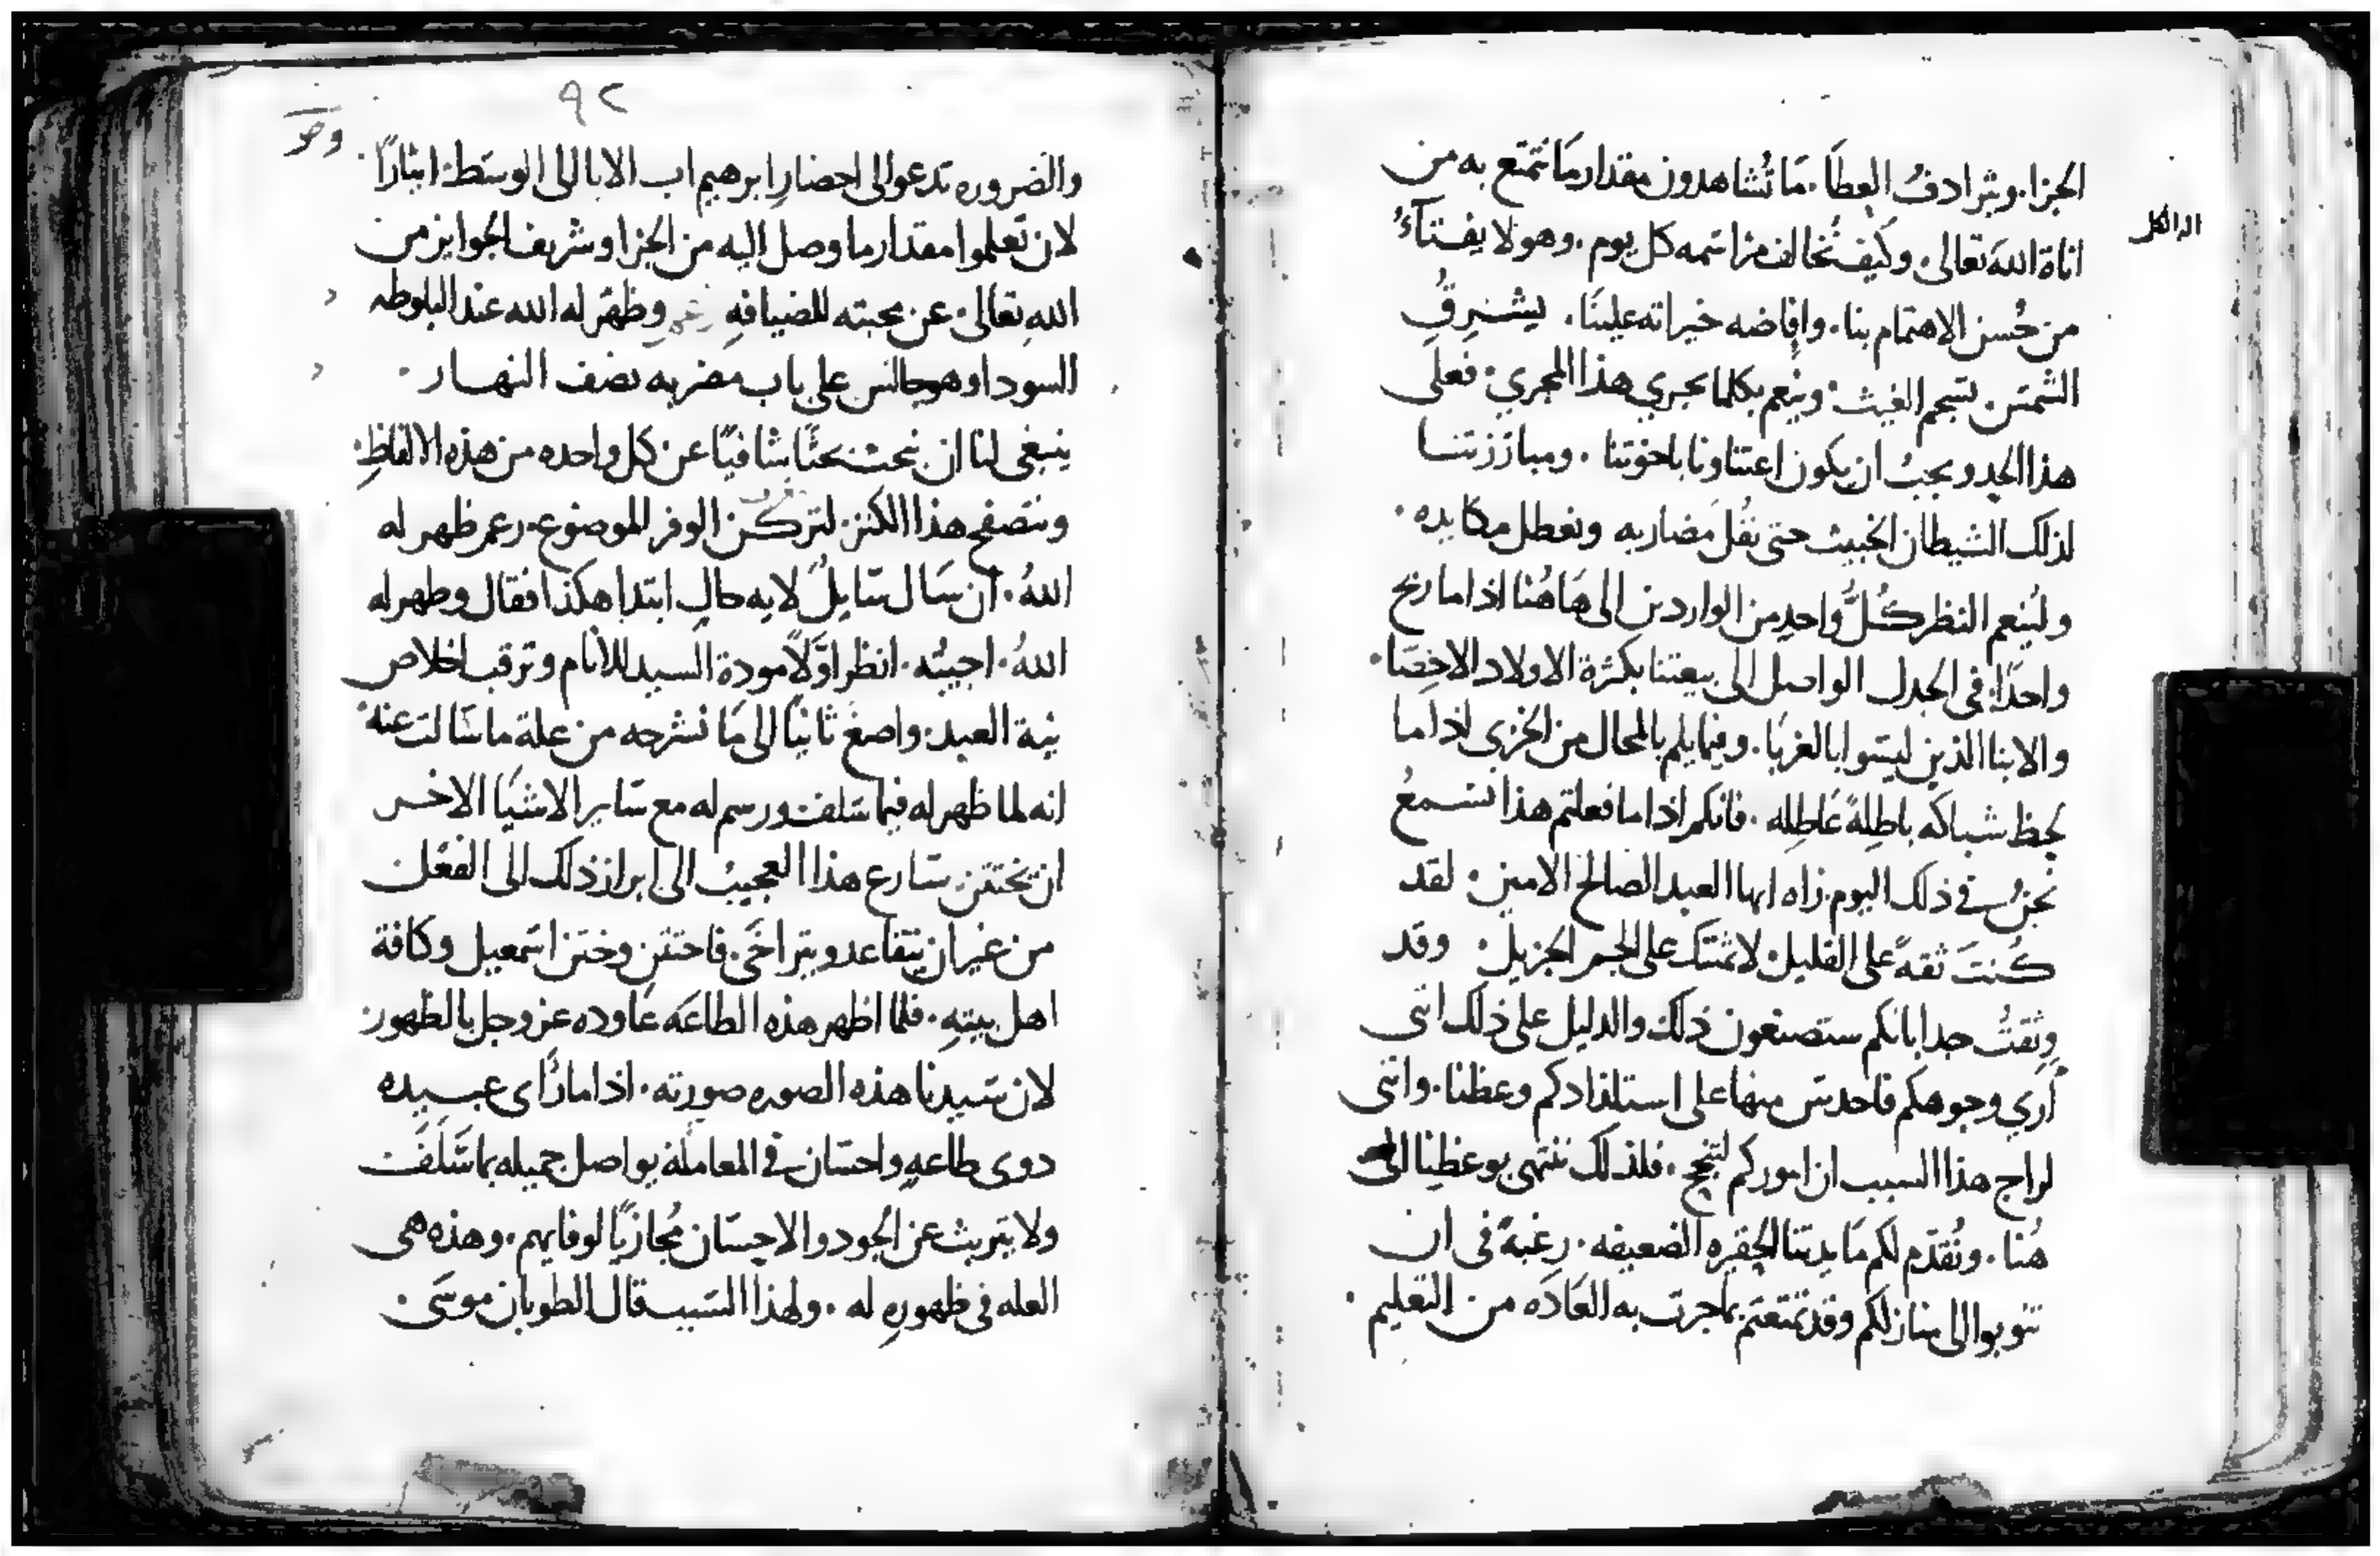 الجزا. وترادفُ العطَا. مَا تُشاهدون مقدار مَا نتمتع به من
اناة الله تعالى. وكيف نُخالف مراسمه كل يوم. وهو لا يفتآءُ
من حُسن الاهتمام بنا. وافاضه خيراته علينَا. يشـرقُ
الشمس. يسجم الغيث. وينعم بكلما يجري هذا المجري. فعلى
هذا الحد ويجبُ ان يكون اعتناونا باخوتنا. ومبارزتنـا
لذلك الشيطان الخبيث حتى نفُل مَضاربه ونعطل مكايده.
ولُينعم النظر كُلُّ واحدٍ من الواردين الى هَاهُنا اذا ما ربح
واحدًا. في الجدل الواصل الى بيعتنا بكثرة الاولاد الاخِصَا.
والابنا الذين ليسوا بالغربَا. وفيما يلم بالمحال من الخزي اذا ما
لحظ شباكه باطِلةً عَاطِله. فانكم اذا ما فعلتم هذا نسـمعُ
نحنُ في ذلك اليوم. زاه ايها العبد الصالح الامين. لقد
كُنتَ ثقةً على القليل. لاثمتك على الجسر الجزيل. وقد
وثقتُ جدا بانكم ستصنعون ذلك والدليل على ذلك انني
أري وجوهكم فاحدس منها على استلذاذكم وعظنا. وانني
لراج هذا السبب ان اموركم لتنجح. فلذلك ننتهى بوعظِنا الى
هُنا. ونُقدّم لكم مَايدتنا الحقيره الضعيفه. رغبةً في ان
تتوبوا الى منازلكم وقد تمتعتم بما جرت به العَادَه من التعليم.
٩٢
والضروره تدعوا الى احضارِ ابرهيم اب الابا الى الوسَط. ايثارًا.
لان تعلموا مقدار ما وصل اليه من الجزا وشريف الجوايز من
الله تعَالى. عن محبته للضيافهِ وظهَر له الله عند البلوطه
السودا وهو جالس على باب مضربه نصف النهـار.
ينبغى لنا ان نبحث بحثًا شافيًا عن كل واحده من هذه الالفاظِ.
ونتصفح هذا الكنز. لتركُن الوفر للموضوع. زعم ظهر له
اللهُ. ان سَال سَايلٌ لايه حال ابتدا هكذا فقال وظهر له
اللهُ. اجيبُه. انظر اوَّلاً مودة السيد للانام وترقب اخلاص
نية العبد. واصغ ثانيًا الى مَا نشرحه من علة ما سَالت عنهُ.
انه لما ظهر له فيما سَلف ورسم له مع سَاير الاشيَا الاخـر
ان يختتن. سَارع هذا العجيب الى ابراز ذلك الى الفعْل
من غير ان يتقاعد ويتراخَى. فاختتن وختن اسمعيل وكافة
اهل بيتهِ. فلما اظهر هذه الطاعَه عاوده عز وجل بالظهور
لان سَيدنا هذه الصوره صورته. اذا ما رأى عبـيده
ذوى طاعهٍ واحسَان في المعاملة يواصل جميله بما سَلَفَ
ولا يتريث عن الجود والاحسَان مُجازيًا لوفايهم. وهذه هى
العله فى ظهورِه له. ولهذا السَبب قال الطوبان موسَى.